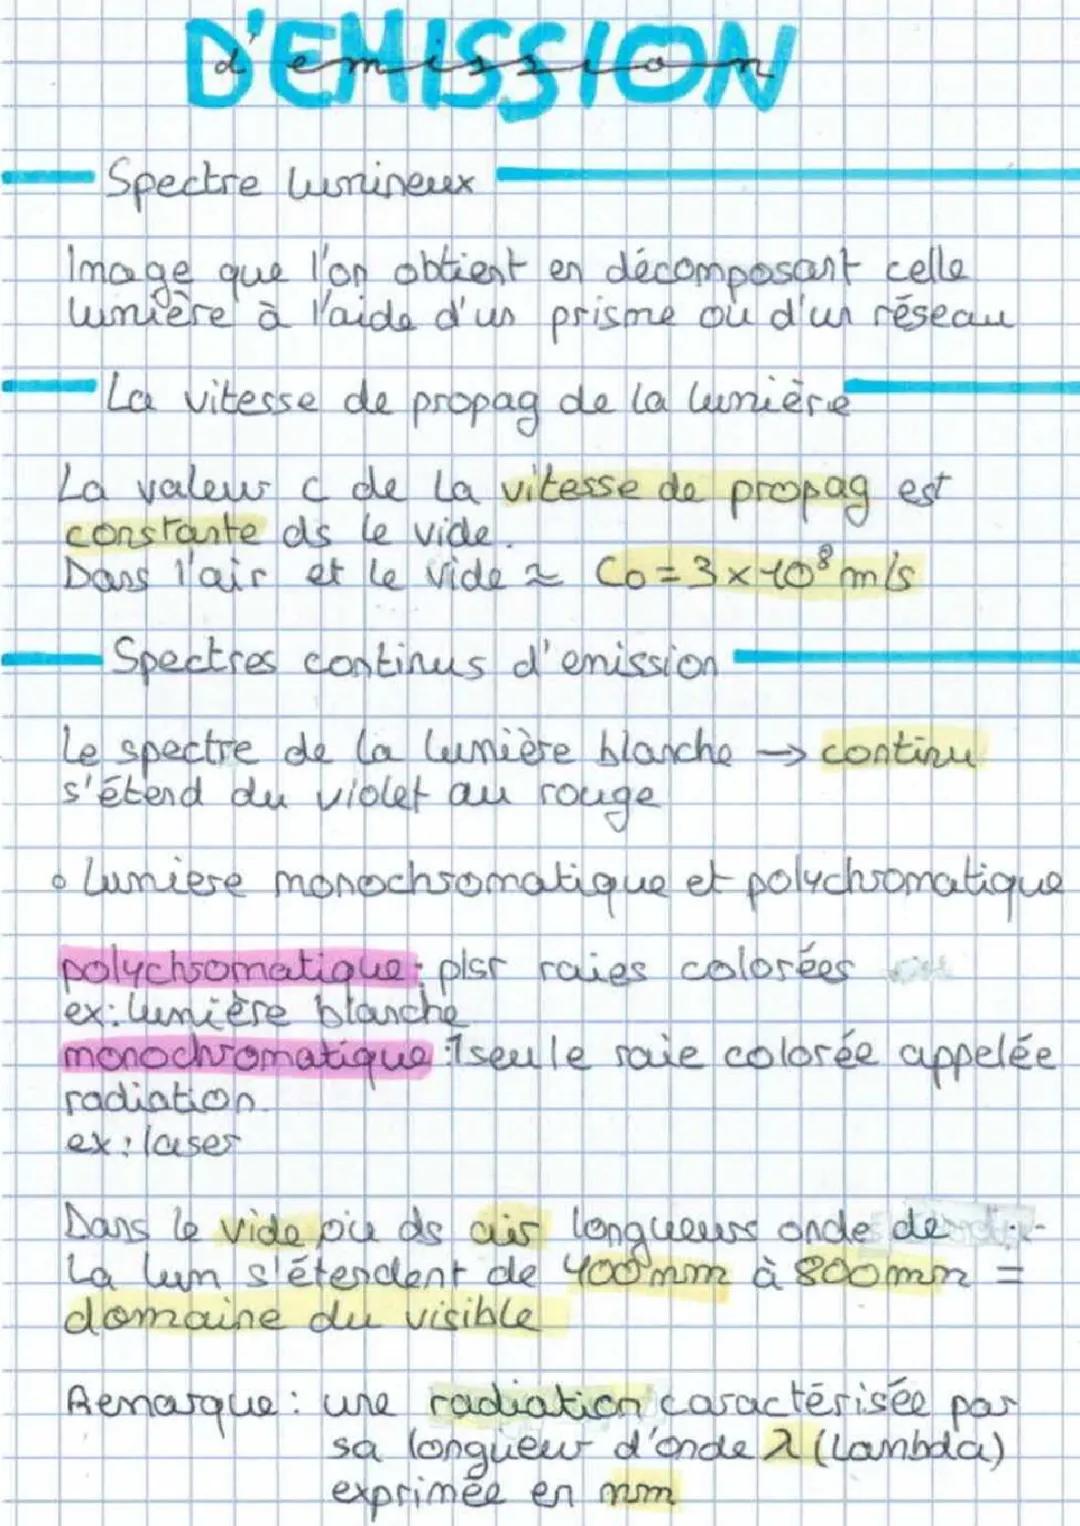 D'EMISSION
d'emission
Spectre lumineux
Image que l'on obtient en décomposant celle
lumière à l'aide d'un prisme ou d'un réseau
La vitesse de propag de la lumière
La valeur c de la vitesse de propag est
constante ds le vide.
Dans l'air et le vide ≈ Co = 3 × 10⁸ m/s
Spectres continus d'emission
Le spectre de la lumière blanche → continu
s'étend du violet au rouge
• Lumiere monochromatique et polychromatique
polychromatique : plsr raies colorées
ex: lumière blanche
monochromatique : 1 seule raie colorée appelée
radiation.
ex : laser
Dans le vide ou ds air longueurs onde de
La lum s'étendent de 400 nm à 800 nm =
domaine du visible
Remarque : une radiation caractérisée par
sa longueur d'onde λ (Lambda)
exprimée en nm